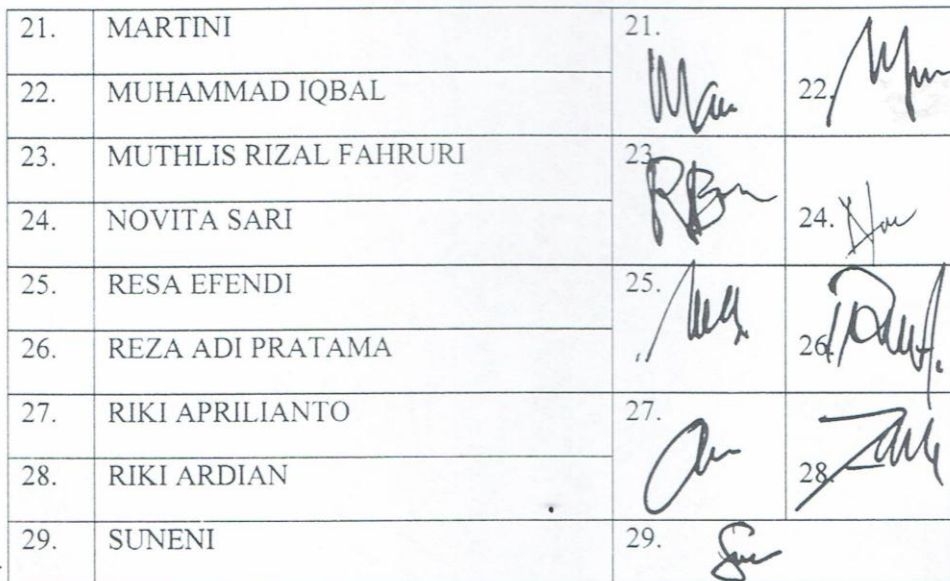 21. MARTINI 21.
22. MUHAMMAD IQBAL 22.
23. MUTHLIS RIZAL FAHRURI 23
24. NOVITA SARI 24.
25. RESA EFENDI 25.
26. REZA ADI PRATAMA 26.
27. RIKI APRILIANTO 27.
28. RIKI ARDIAN 28.
29. SUNENI 29.